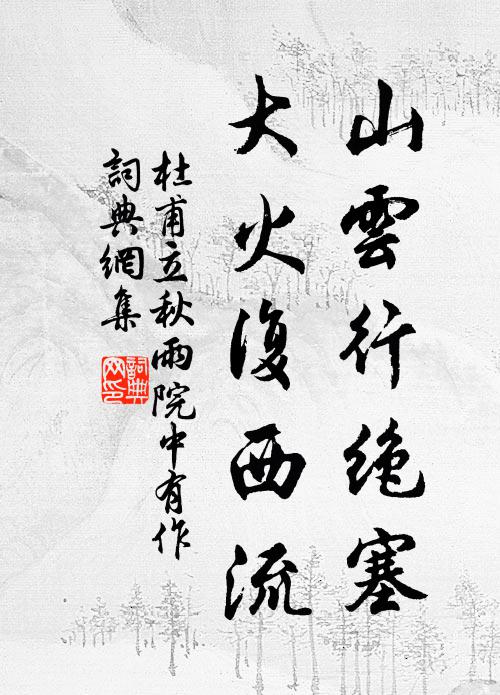 山雲行绝塞
大火復西流
杜甫立秋雨院中有作
詞典網集
詞典网印